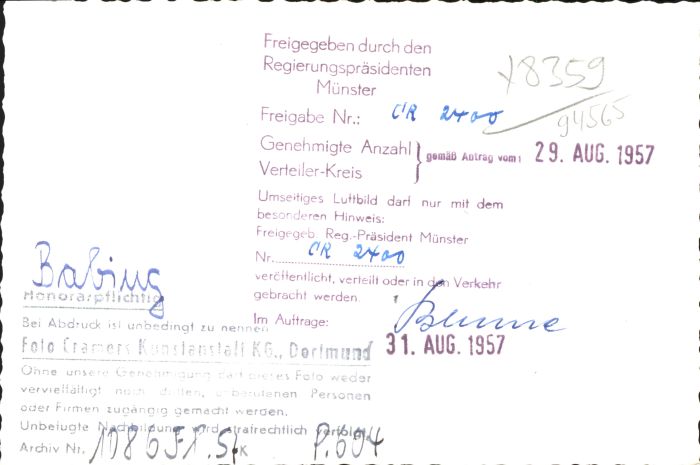 Freigegeben durch den
Regierungspräsidenten
Münster
Freigabe Nr.: CR 2400
Genehmigte Anzahl
Verteiler-Kreis
gemäß Antrag vom: 29. AUG. 1957
18359
94565
Umseitiges Luftbild darf nur mit dem
besonderen Hinweis:
Freigegeb. Reg.-Präsident Münster
Nr. CR 2400
veröffentlicht, verteilt oder in den Verkehr
gebracht werden.
Im Auftrage: Blume
31. AUG. 1957
Babing
Honorarpflichtig
Bei Abdruck ist unbedingt zu nennen
Foto Cramers Kunstanstalt KG., Dortmund
Ohne unsere Genehmigung darf dieses Foto weder
vervielfältigt noch dritten, unberufenen Personen
oder Firmen zugängig gemacht werden.
Unbefugte Nachbildung wird strafrechtlich verfolgt.
Archiv Nr. P.604